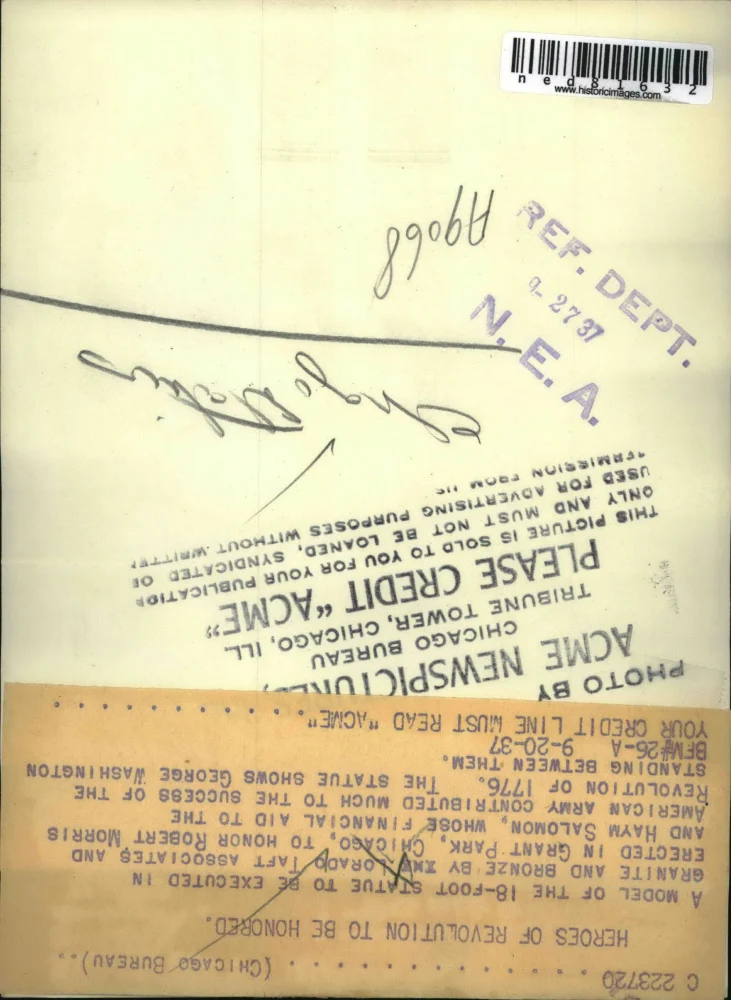 ned81632
www.historicimages.com
REF. DEPT.
9-27 37
N. E. A.
C 223720 . . . . . . . . . . . . (CHICAGO BUREAU)..
HEROES OF REVOLUTION TO BE HONORED.
A MODEL OF THE 18-FOOT STATUE TO BE EXECUTED IN
GRANITE AND BRONZE BY LORADO TAFT ASSOCIATES AND
ERECTED IN GRANT PARK, CHICAGO, TO HONOR ROBERT MORRIS
AND HAYM SALOMON, WHOSE FINANCIAL AID TO THE
AMERICAN ARMY CONTRIBUTED MUCH TO THE SUCCESS OF THE
REVOLUTION OF 1776. THE STATUE SHOWS GEORGE WASHINGTON
STANDING BETWEEN THEM.
BFM#26-A 9-20-37
YOUR CREDIT LINE MUST READ "ACME" . . . . . . . . . . .
PHOTO BY
ACME NEWSPICTURES,
CHICAGO BUREAU
TRIBUNE TOWER, CHICAGO, ILL.
PLEASE CREDIT "ACME"
THIS PICTURE IS SOLD TO YOU FOR YOUR PUBLICATION
ONLY AND MUST NOT BE LOANED, SYNDICATED OR
USED FOR ADVERTISING PURPOSES WITHOUT WRITTEN
PERMISSION FROM US
Chgo. Statues
A9068